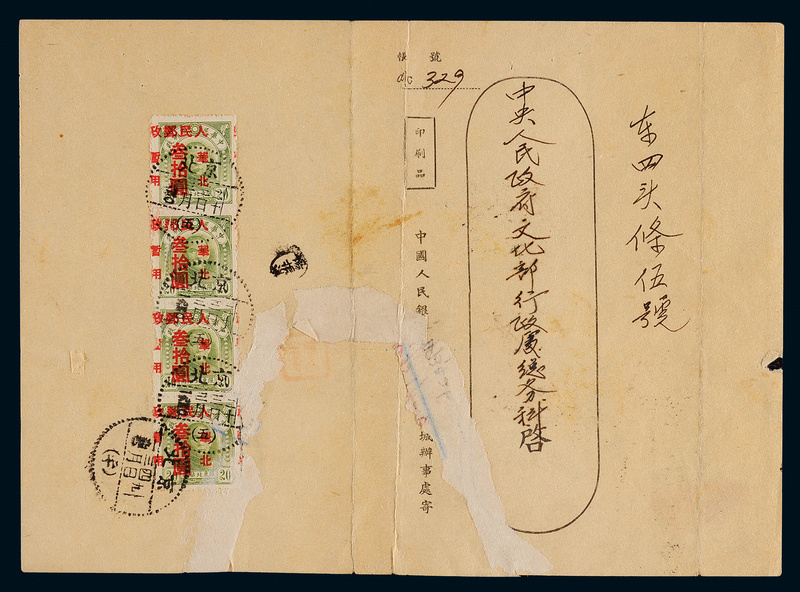 东四头條伍號
中央人民政府文化部行政處總务科啓
帳號
No 329
印刷品
中國人民銀
城辦事處寄
人民郵政
華北
暫用
叁拾圓
20
北京
人民郵政
華北
暫用
叁拾圓
20
20
北京
人民郵政
華北
用
叁拾圓
北京
人民
華北
用
叁拾圓
20
(五)
(五)
(十)